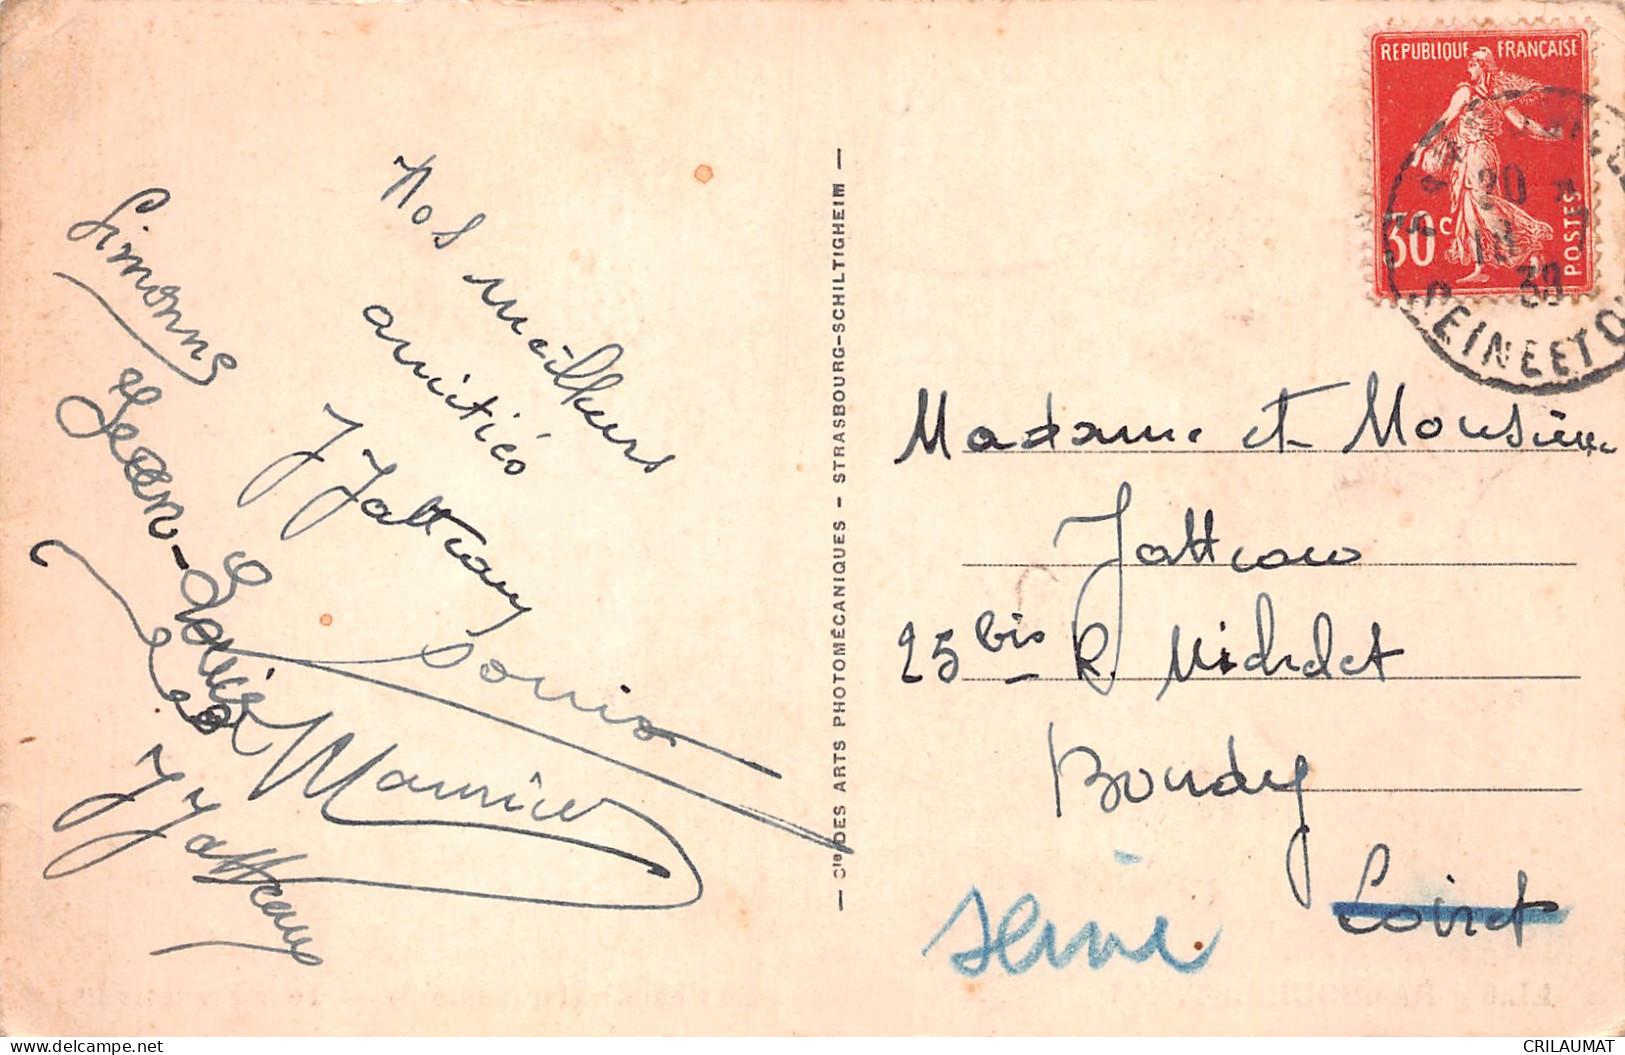 Nos meilleurs
amitiés
Simonne
Jean-Louis
Louis
Maurice
Cie DES ARTS PHOTOMÉCANIQUES - STRASBOURG-SCHILTIGHEIM
REPUBLIQUE FRANÇAISE
30c
POSTES
20
38
SEINE ET O
Madame et Monsieur
25 bis R. Michelet
Bondy
Loiret
Seine
https://www.delcampe.net
CRILAUMAT